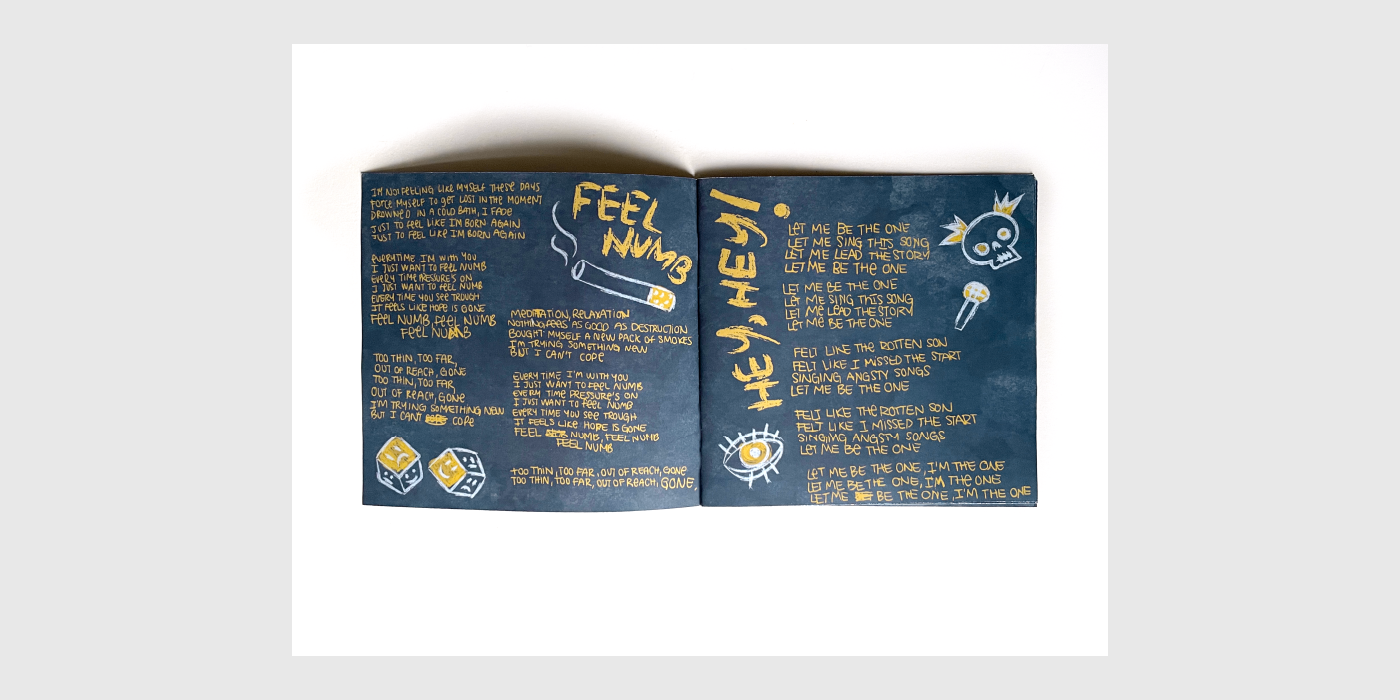 I'M NOT FEELING LIKE MYSELF THESE DAYS
FORCE MYSELF TO GET LOST IN THE MOMENT
DROWNED IN A COLD BATH, I FADE
JUST TO FEEL LIKE I'M BORN AGAIN
JUST TO FEEL LIKE I'M BORN AGAIN
EVERYTIME I'M WITH YOU
I JUST WANT TO FEEL NUMB
EVERY TIME PRESSURE'S ON
I JUST WANT TO FEEL NUMB
EVERY TIME YOU SEE TROUGH
IT FEELS LIKE HOPE IS GONE
FEEL NUMB, FEEL NUMB
FEEL NUMB
TOO THIN, TOO FAR,
OUT OF REACH, GONE
TOO THIN, TOO FAR
OUT OF REACH, GONE
I'M TRYING SOMETHING NEW
BUT I CAN'T COPE
FEEL
NUMB
MEDITATION, RELAXATION
NOTHING FEELS AS GOOD AS DESTRUCTION
BOUGHT MYSELF A NEW PACK OF SMOKES
I'M TRYING SOMETHING NEW
BUT I CAN'T COPE
EVERY TIME I'M WITH YOU
I JUST WANT TO FEEL NUMB
EVERY TIME PRESSURE'S ON
I JUST WANT TO FEEL NUMB
EVERY TIME YOU SEE TROUGH
IT FEELS LIKE HOPE IS GONE
FEEL NUMB, FEEL NUMB
FEEL NUMB
TOO THIN, TOO FAR, OUT OF REACH, GONE
TOO THIN, TOO FAR, OUT OF REACH, GONE.
HEY, HEY!
LET ME BE THE ONE
LET ME SING THIS SONG
LET ME LEAD THE STORY
LET ME BE THE ONE
LET ME BE THE ONE
LET ME SING THIS SONG
LET ME LEAD THE STORY
LET ME BE THE ONE
FELT LIKE THE ROTTEN SON
FELT LIKE I MISSED THE START
SINGING ANGSTY SONGS
LET ME BE THE ONE
FELT LIKE THE ROTTEN SON
FELT LIKE I MISSED THE START
SINGING ANGSTY SONGS
LET ME BE THE ONE
LET ME BE THE ONE, I'M THE ONE
LET ME BE THE ONE, I'M THE ONE
LET ME BE THE ONE, I'M THE ONE